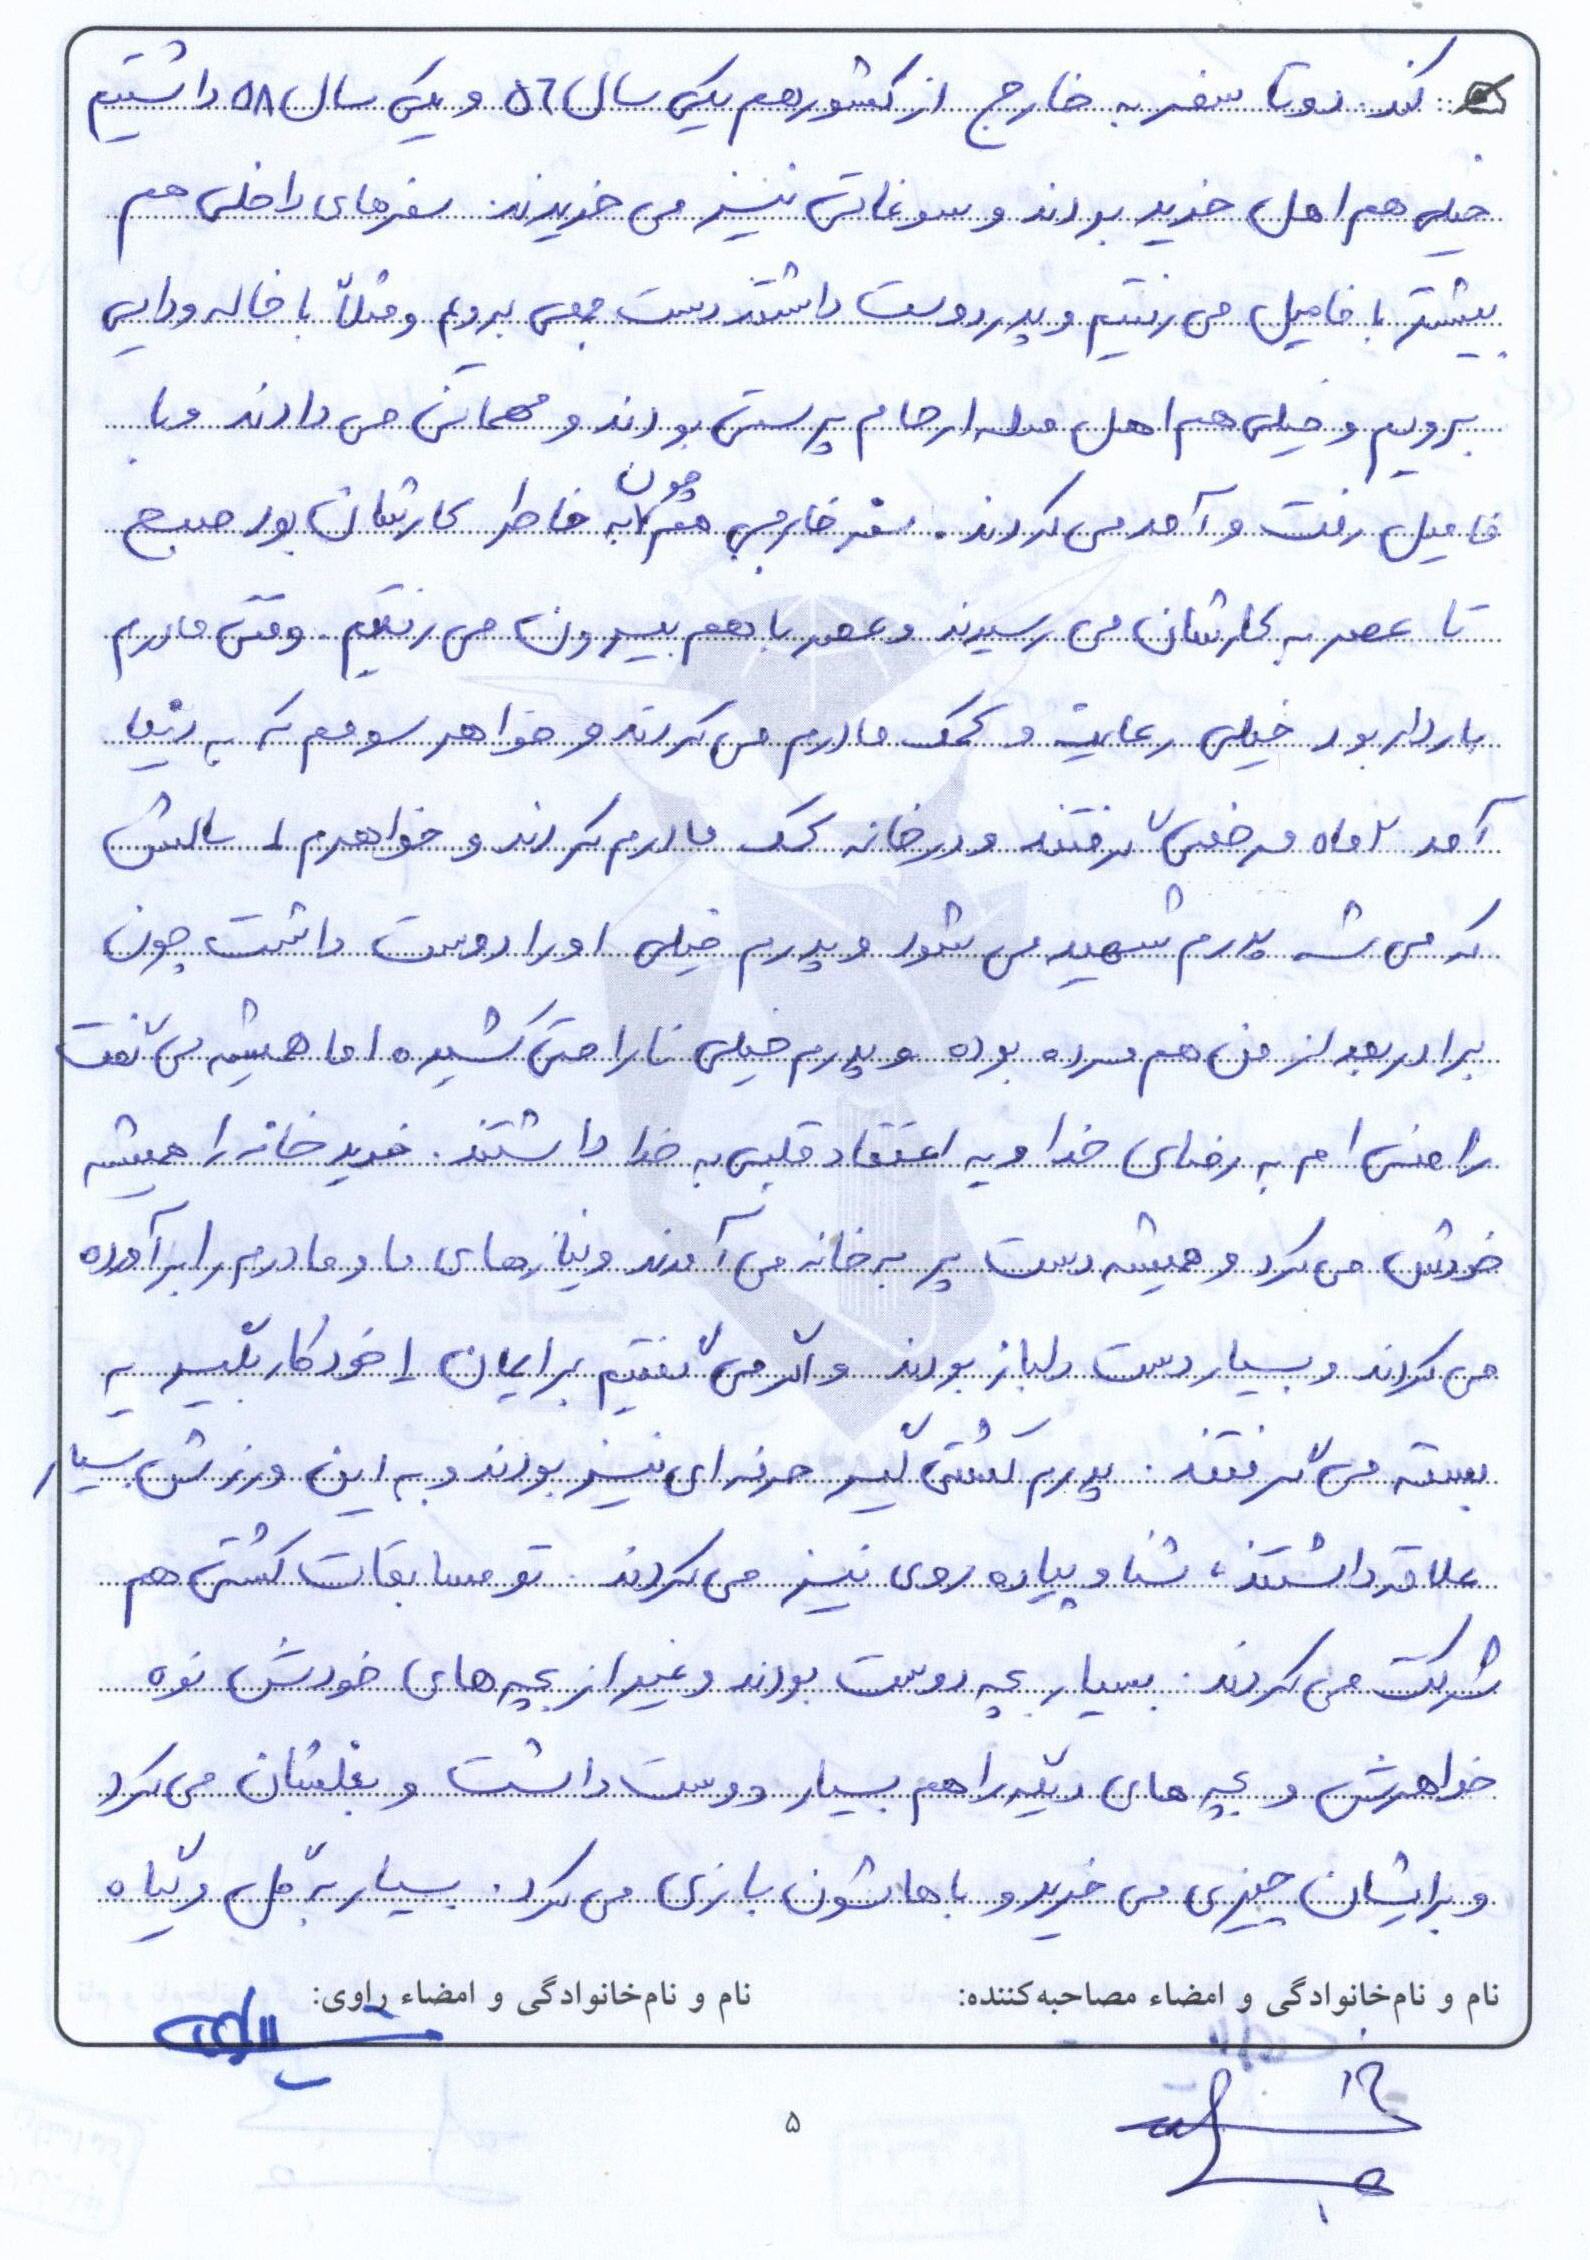 کند. دوتا سفر به خارج از کشور هم یکی سال ۵۶ و یکی سال ۵۸ داشتیم
خیلی هم اهل خرید بودند و سوغاتی نیز می خریدند. سفرهای داخلی هم
بیشتر با فامیل می رفتیم و پدرم دوست داشتند دست جمعی برویم و مثلاً با خاله و دایی
برویم و خیلی هم اهل صله ارحام پرستی بودند و مهمانی می دادند و با
فامیل رفت و آمد می کردند. سفر خارجی هم چون به خاطر کارشان بود صبح
تا عصر به کارشان می رسیدند و عصر با هم بیرون می رفتیم. وقتی مادرم
باردار بود خیلی رعایت و کمک مادرم می کردند و خواهر سومم که به دنیا
آمد ۲ ماه مرخصی گرفتند و در خانه کمک مادرم کردند و خواهرم ۱ سالش
که می شه پدرم شهید می شود و پدرم خیلی او را دوست داشت چون
برادر بعد از من هم مرده بوده و پدرم خیلی ناراحتی کشیده اما همیشه می گفت
راضی ام به رضای خدا و یه اعتقاد قلبی به خدا داشتند. خرید خانه را همیشه
خودش می کرد و همیشه دست پر به خانه می آمدند و نیازهای ما و مادرم را برآورده
می کردند و بسیار دست دلباز بودند و اگر می گفتیم برایمان ۱ خودکار بگیر یه
بسته می گرفتند. پدرم کشتی گیر حرفه ای نیز بودند و به این ورزش بسیار
علاقه داشتند، شنا و پیاده روی نیز می کردند. تو مسابقات کشتی هم
شرکت می کردند. بسیار بچه دوست بودند و غیر از بچه های خودش نوه
خواهرش و بچه های دیگه را هم بسیار دوست داشت و بغلشان می کرد
و برایشان چیزی می خرید و باهاشون بازی می کرد. بسیار به گل و گیاه
نام و نام‌خانوادگی و امضاء مصاحبه‌کننده: نام و نام‌خانوادگی و امضاء راوی:
۵